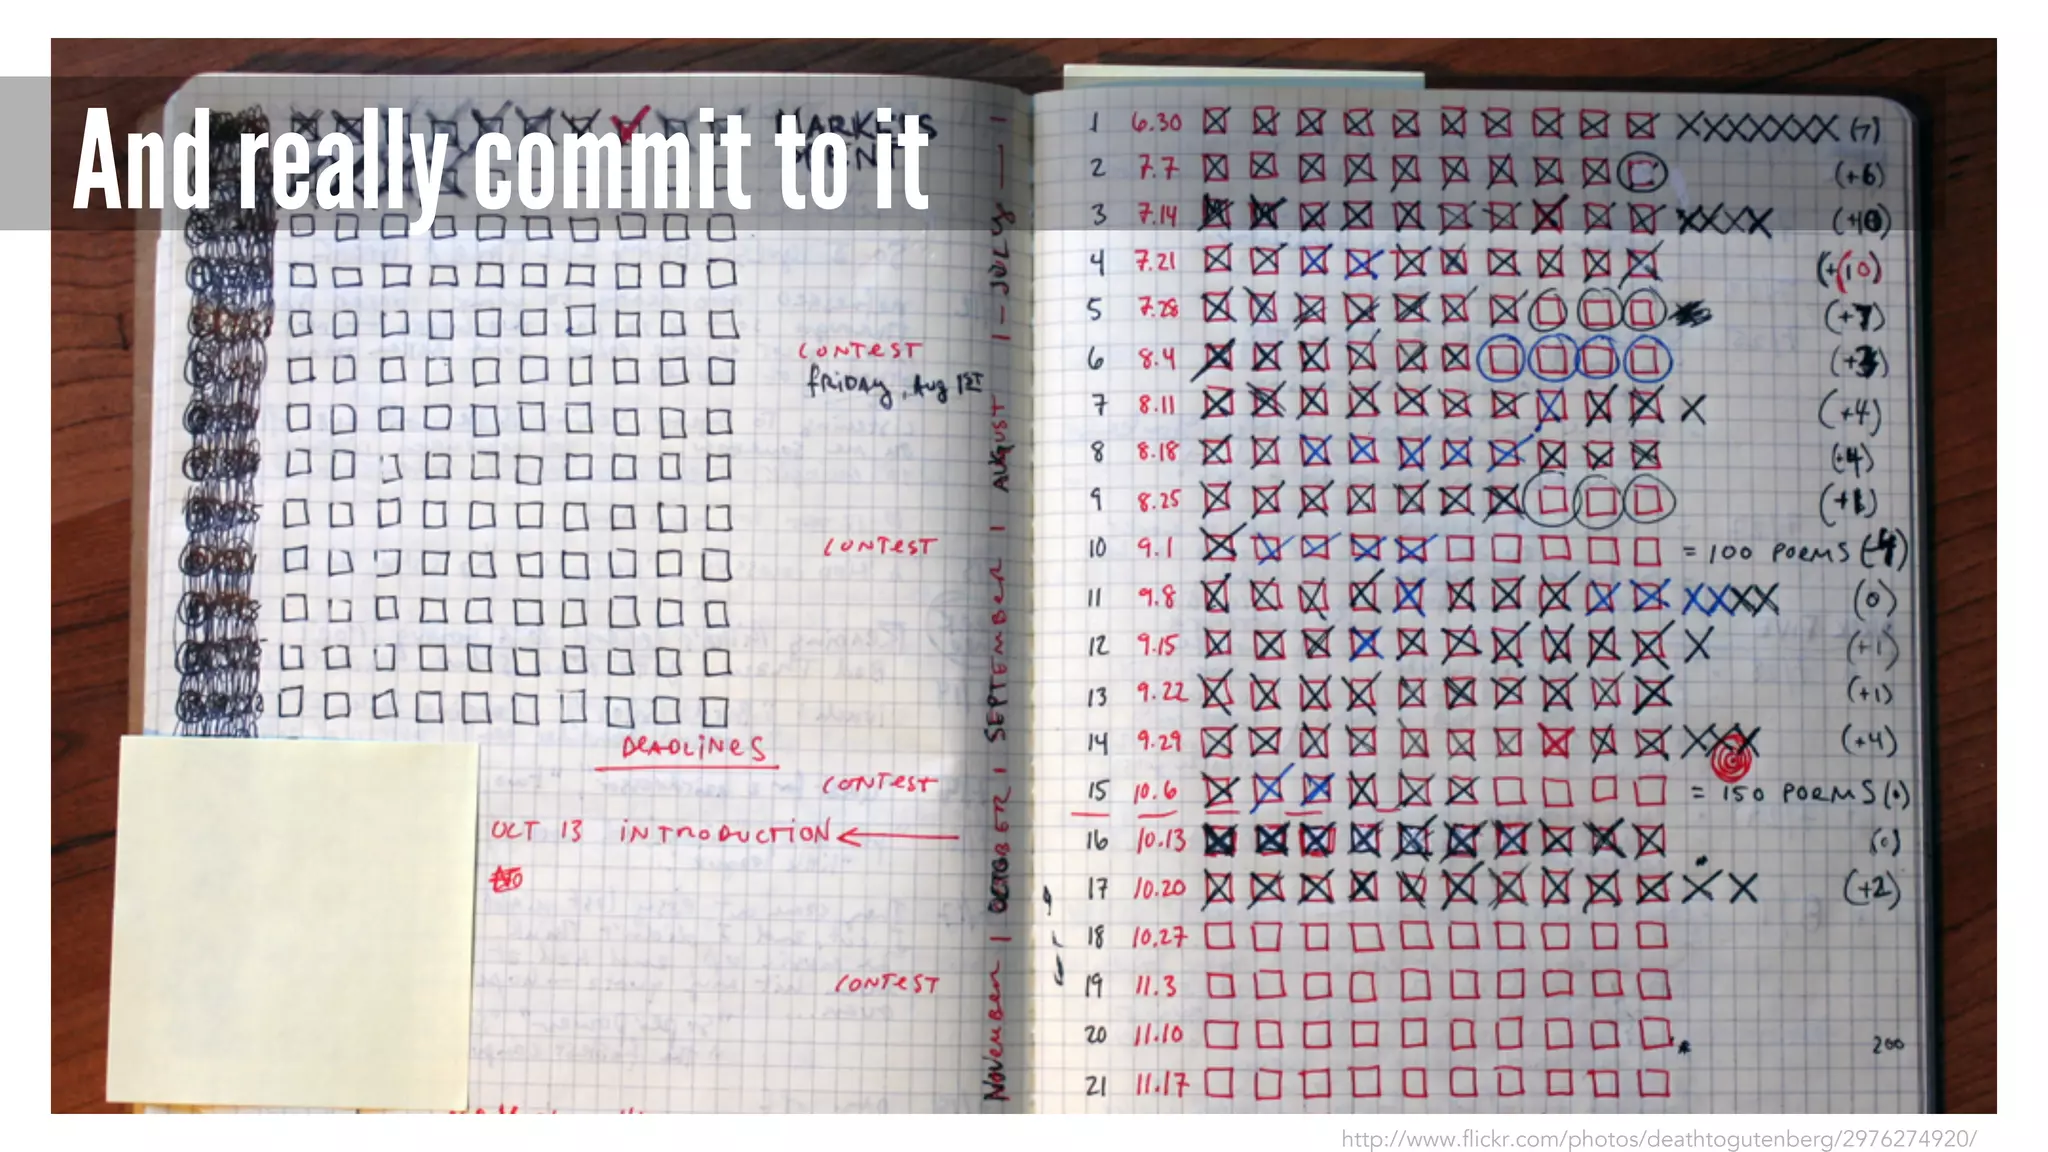 And really commit to it
MARKERS
CONTEST
FRIDAY, Aug 1ST
CONTEST
DEADLINES
CONTEST
OCT 13 INTRODUCTION
NO
CONTEST
NOVEMBER | OCTOBER | SEPTEMBER | AUGUST | JULY
1 6.30 (7)
2 7.7 (+6)
3 7.14
4 7.21 (+(10)
5 7.28 (+7)
6 8.4
7 8.11 X (+4)
8 8.18
9 8.25
10 9.1 = 100 POEMS
11 9.8 XXXX (0)
12 9.15 X (+1)
13 9.22 (+1)
14 9.29 (+4)
15 10.6 = 150 POEMS (0)
16 10.13 (0)
17 10.20 XX (+2)
18 10.27
19 11.3
20 11.10 200
21 11.17
http://www.flickr.com/photos/deathtogutenberg/2976274920/